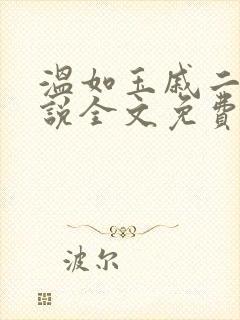 温如玉戚二
說全文免費
波尔